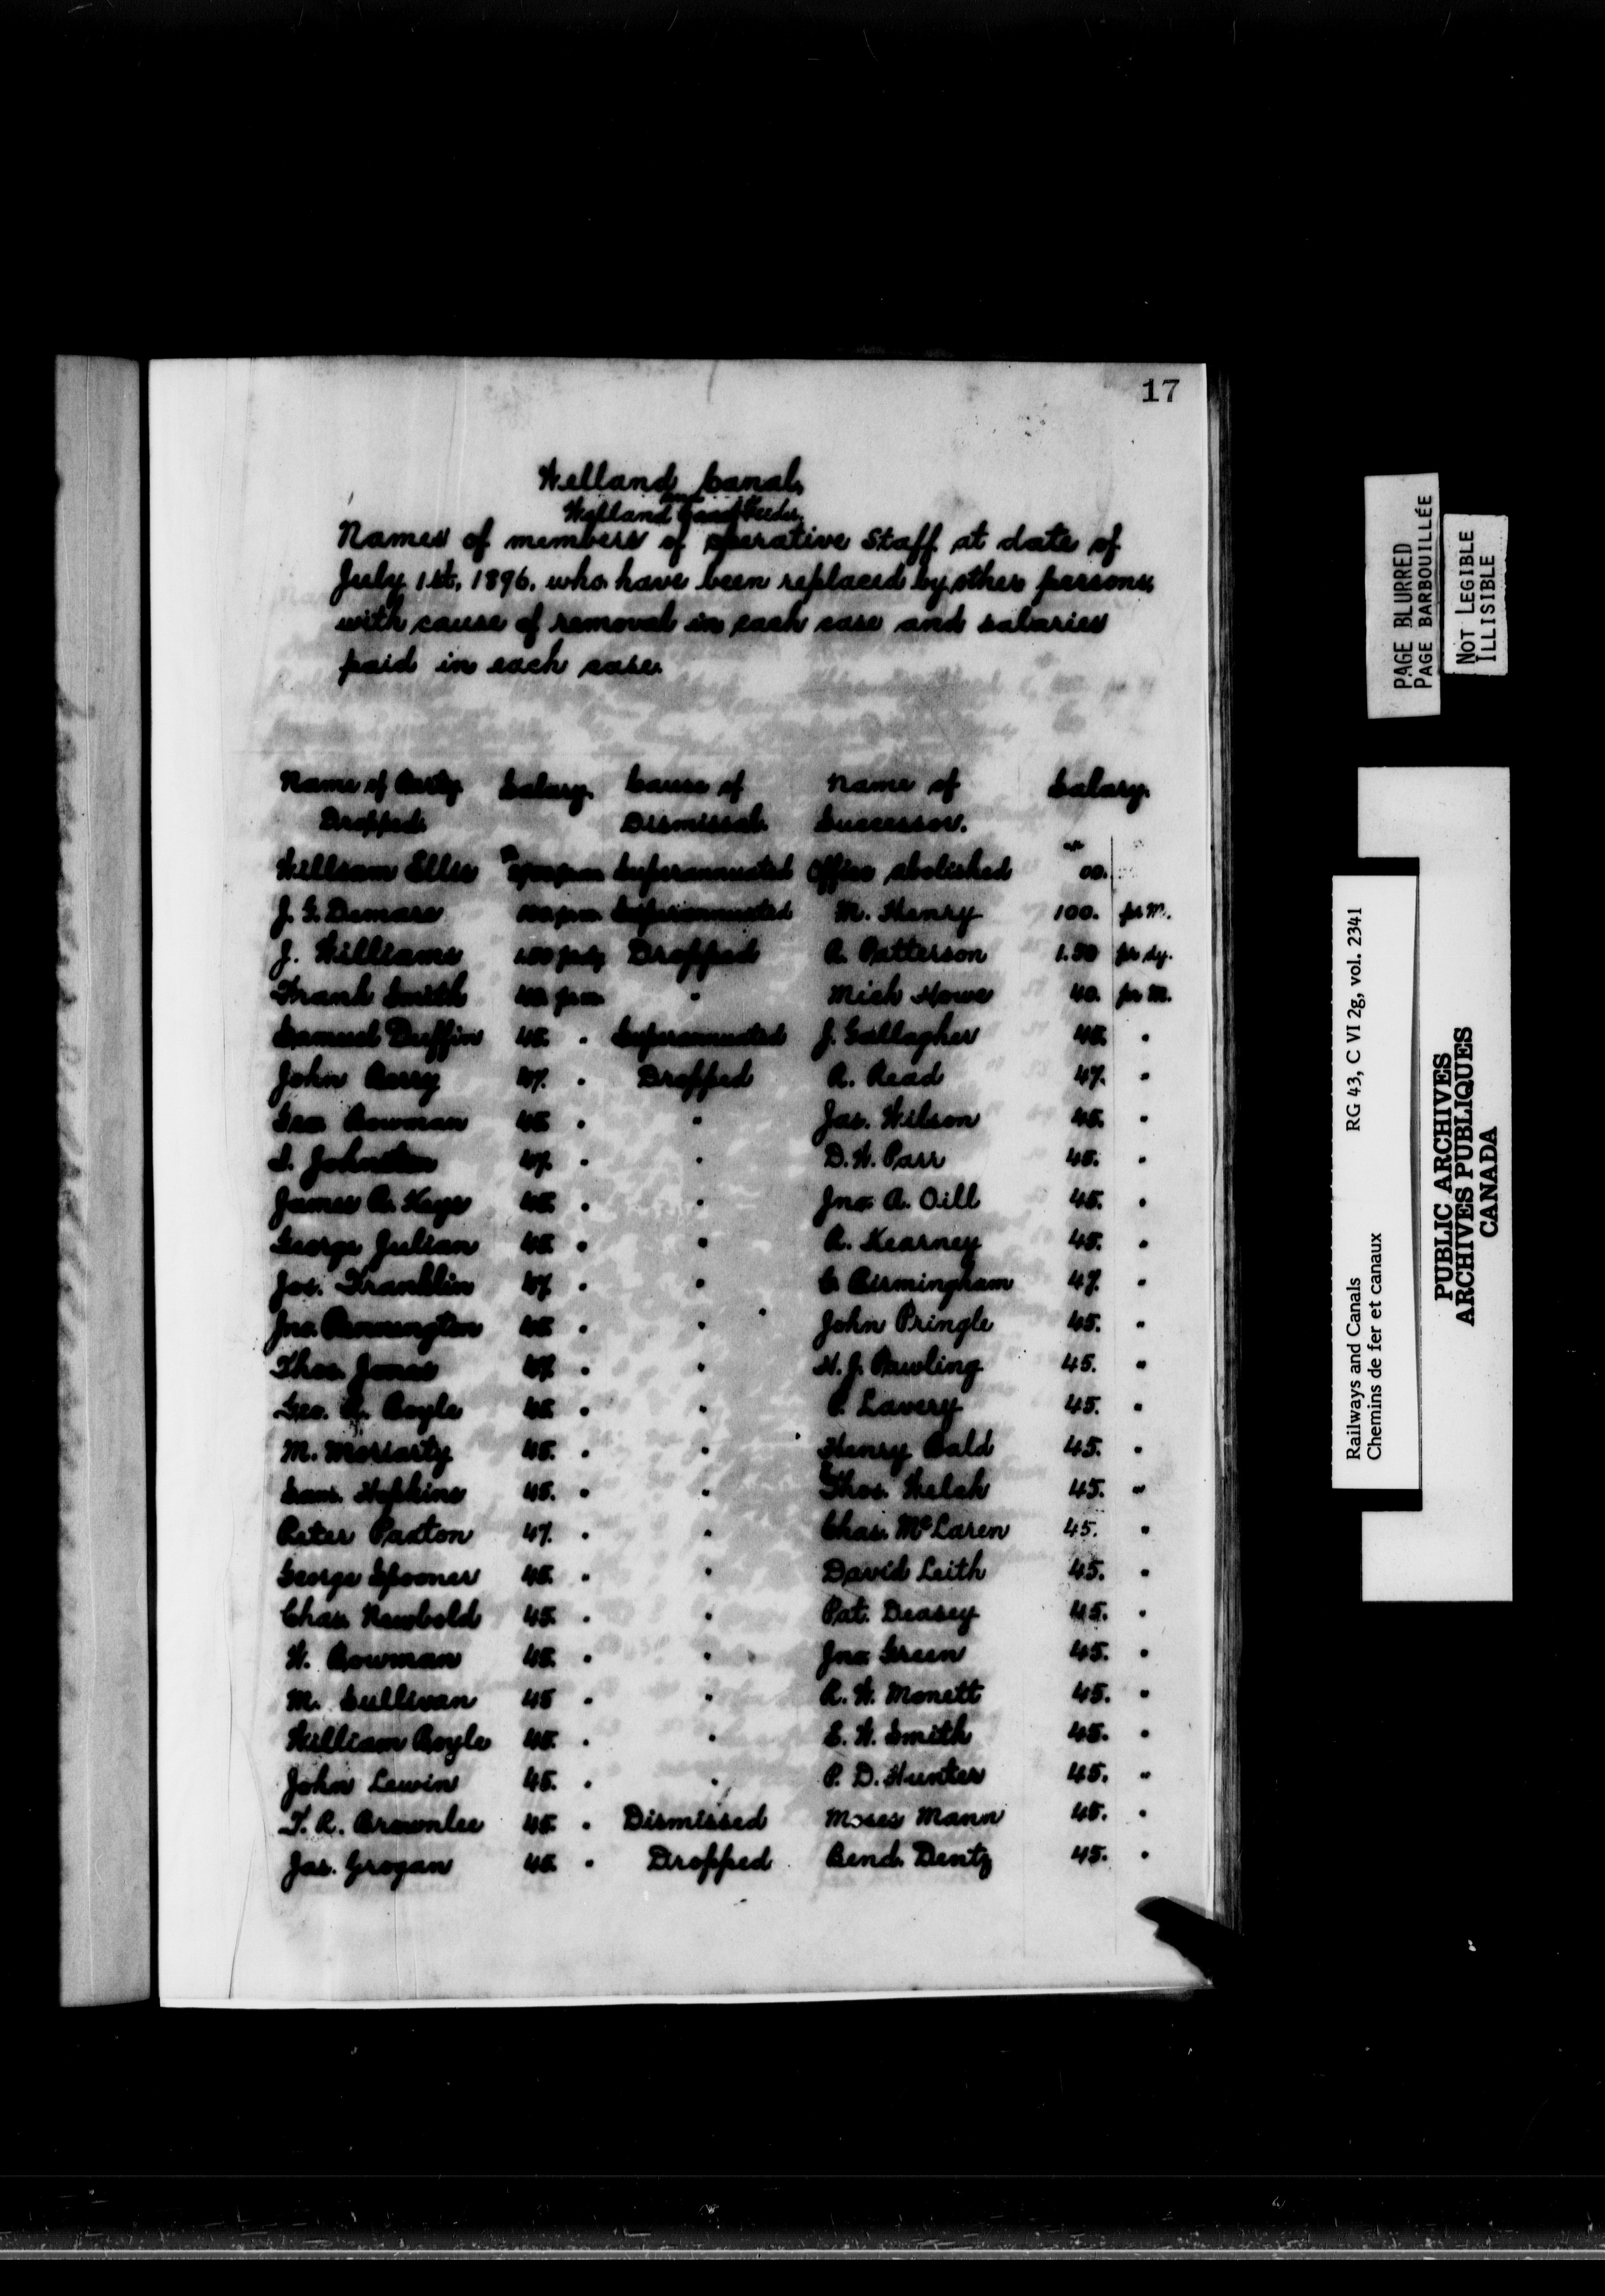 17
Welland Canal,
Welland Feeder.
Names of members of operative Staff at date of
July 1st, 1896. who have been replaced by other persons,
with cause of removal in each case and salaries
paid in each case.
Name of Party Salary. Cause of Name of Salary.
Dropped. Dismissal. Successor.
William Ellis Superannuated Office abolished 00.
J. G. Demare 100 pr m Superannuated M. Henry 100. pr M.
J. Williams 1.50 pr dy Dropped A. Patterson 1.50 pr dy.
Frank Smith 40. pr m " Mich Howe 40. pr M.
Samuel Duffin 45. " Superannuated J. Gallagher 45. "
John Berry 47. " Dropped R. Read 47. "
Geo. Bowman 45 " " Jas. Wilson 45. "
Johnston 47. " " D. W. Parr 45. "
James A. Kays 45. " " Jno. A. Oill 45. "
George Julian 45. " " R. Kearney 45. "
Jos. Franklin 47 " " C. Birmingham 47. "
Jno. Pennington 45 " " John Pringle 45. "
Thos. Jones 47. " " H. J. Pawling 45. "
Geo. Boyle 45. " " P. Lavery 45. "
M. Moriarty 45. " " Henry Bald 45. "
Sam. Hopkins 45. " " Thos. Welch 45. "
Peter Paxton 47. " " Chas. McLaren 45. "
George Spooner 45. " " David Leith 45. "
Chas. Newbold 45. " " Pat. Deasey 45. "
W. Bowman 45. " " Jno Green 45. "
M. Sullivan 45 " " R. W. Monett 45. "
William Boyle 45. " " E. W. Smith 45. "
John Lewin 45. " " P. D. Hunter 45. "
T. R. Brownlee 45. " Dismissed Moses Mann 45. "
Jas. Grogan 45. " Dropped Bend. Dentz 45. "
PAGE BLURRED
PAGE BARBOUILLÉE
NOT LEGIBLE
ILLISIBLE
Railways and Canals RG 43, C VI 2g, vol. 2341
Chemins de fer et canaux
PUBLIC ARCHIVES
ARCHIVES PUBLIQUES
CANADA